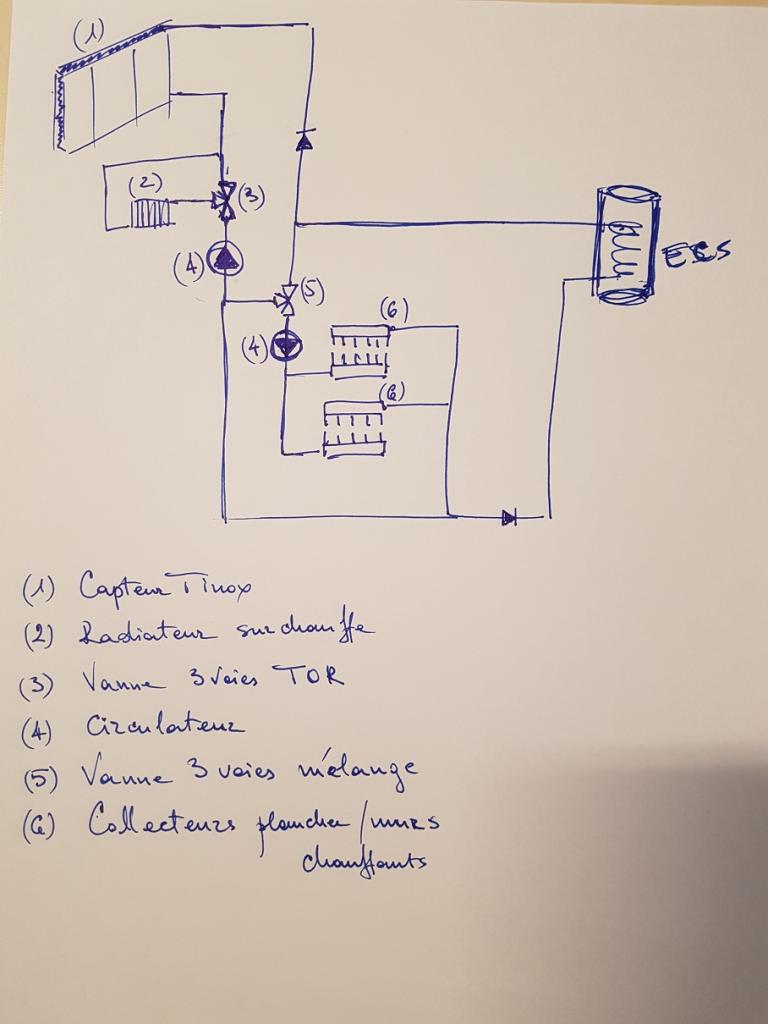 (1)
(2)
(3)
(4)
(5)
(4)
(6)
(6)
ECS
(1) Capteur Tinox
(2) Radiateur surchauffe
(3) Vanne 3 voies TOR
(4) Circulateur
(5) Vanne 3 voies mélange
(6) Collecteurs plancher/murs
chauffants